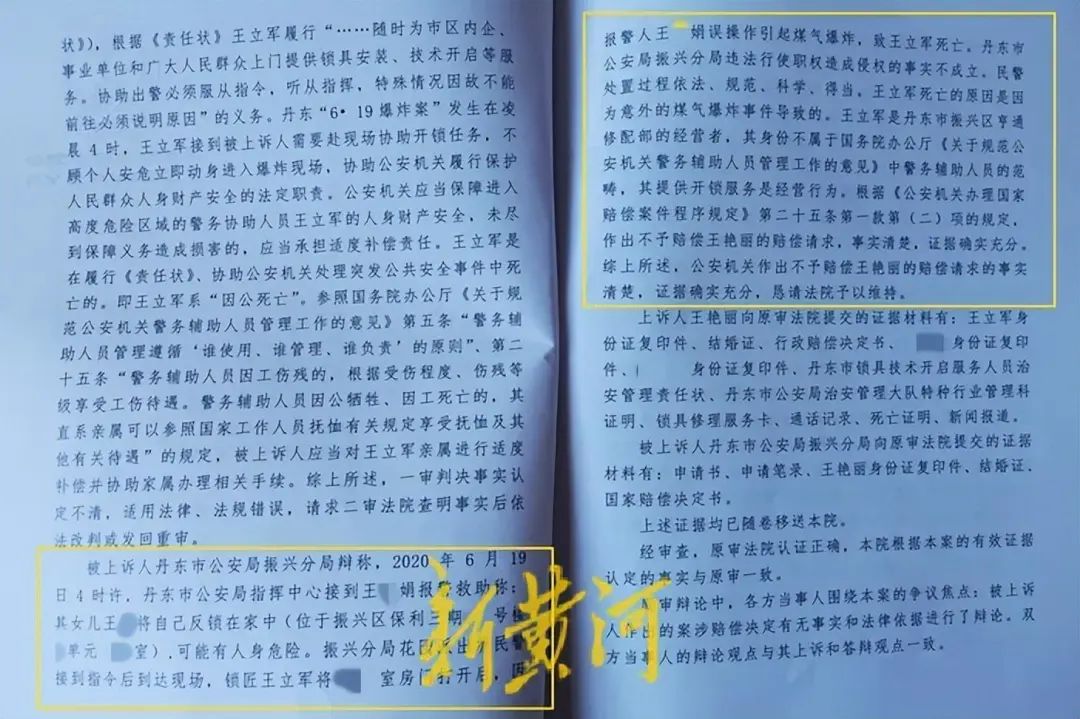 状》），根据《责任状》王立军履行“……随时为市区内企、
事业单位和广大人民群众上门提供锁具安装、技术开启等服
务。协助出警必须服从指令，听从指挥，特殊情况因故不能
前往必须说明原因”的义务。丹东“6·19爆炸案”发生在凌
晨4时，王立军接到被上诉人需要赴现场协助开锁任务，不
顾个人安危立即动身进入爆炸现场，协助公安机关履行保护
人民群众人身财产安全的法定职责。公安机关应当保障进入
高度危险区域的警务协助人员王立军的人身财产安全，未尽
到保障义务造成损害的，应当承担适度补偿责任。王立军是
在履行《责任状》、协助公安机关处理突发公共安全事件中死
亡的。即王立军系“因公死亡”。参照国务院办公厅《关于规
范公安机关警务辅助人员管理工作的意见》第五条“警务辅
助人员管理遵循‘谁使用、谁管理、谁负责’的原则”、第二
十五条“警务辅助人员因工伤残的，根据受伤程度、伤残等
级享受工伤待遇。警务辅助人员因公牺牲、因工死亡的，其
直系亲属可以参照国家工作人员抚恤有关规定享受抚恤及其
他有关待遇”的规定，被上诉人应当对王立军亲属进行适度
补偿并协助家属办理相关手续。综上所述，一审判决事实认
定不清，适用法律、法规错误，请求二审法院查明事实后依
法改判或发回重审。
被上诉人丹东市公安局振兴分局辩称，2020年6月19
日4时许，丹东市公安局指挥中心接到王 娟报警救助称：
其女儿王 将自己反锁在家中（位于振兴区保利三期 号楼
单元 室），可能有人身危险。振兴分局花园派出所民警
接到指令后到达现场，锁匠王立军将 室房门打开后，因
报警人王 娟误操作引起煤气爆炸，致王立军死亡。丹东市
公安局振兴分局违法行使职权造成侵权的事实不成立。民警
处置过程依法、规范、科学、得当。王立军死亡的原因是因
为意外的煤气爆炸事件导致的。王立军是丹东市振兴区亨通
修配部的经营者，其身份不属于国务院办公厅《关于规范公
安机关警务辅助人员管理工作的意见》中警务辅助人员的范
畴，其提供开锁服务是经营行为。根据《公安机关办理国家
赔偿案件程序规定》第二十五条第一款第（二）项的规定，
作出不予赔偿王艳丽的赔偿请求，事实清楚，证据确实充分。
综上所述，公安机关作出不予赔偿王艳丽的赔偿请求的事实
清楚，证据确实充分，恳请法院予以维持。
上诉人王艳丽向原审法院提交的证据材料有：王立军身
份证复印件、结婚证、行政赔偿决定书、 身份证复印
件、 身份证复印件、丹东市锁具技术开启服务人员治
安管理责任状、丹东市公安局治安管理大队特种行业管理科
证明、锁具修理服务卡、通话记录、死亡证明、新闻报道。
被上诉人丹东市公安局振兴分局向原审法院提交的证据
材料有：申请书、申请笔录、王艳丽身份证复印件、结婚证、
国家赔偿决定书。
上述证据均已随卷移送本院。
经审查，原审法院认证正确，本院根据本案的有效证据
认定的事实与原审一致。
审辩论中，各方当事人围绕本案的争议焦点：被上诉
人作出的案涉赔偿决定有无事实和法律依据进行了辩论。双
方当事人的辩论观点与其上诉和答辩观点一致。
新黄河